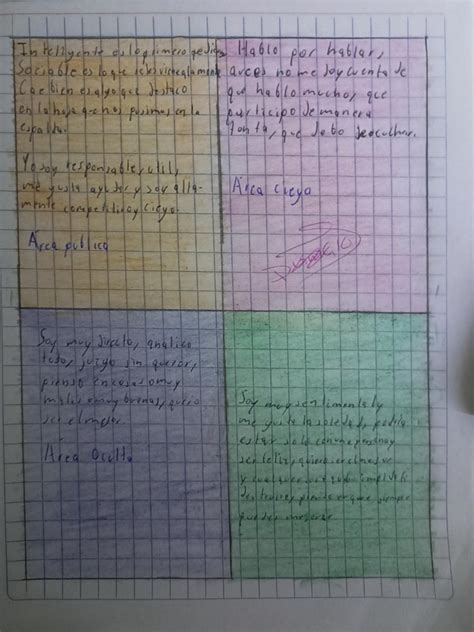 Inteligente es lo primero que dicen
Sociable es lo que se les viene a la mente
Cae bien es algo que destaco
en la hoja que nos pusimos en la
espalda.
Yo soy responsable, util,
me gusta ayudar y soy alta-
mente competitivo y ciego.
Área publica
Hablo por hablar,
aveces no me doy cuenta de
que hablo mucho, que
participo de manera
tonta, que debo escuchar.
Área ciega
Soy muy directo, analico
todo, juzgo sin querer,
pienso en cosas o muy
malas o muy buenas, quiero
ser el mejor.
Área Oculta
Soy muy sentimental y
me gusta la soledad,
estar solo con una persona y
ser feliz,
y cualquier
siempre
puedes mejorar